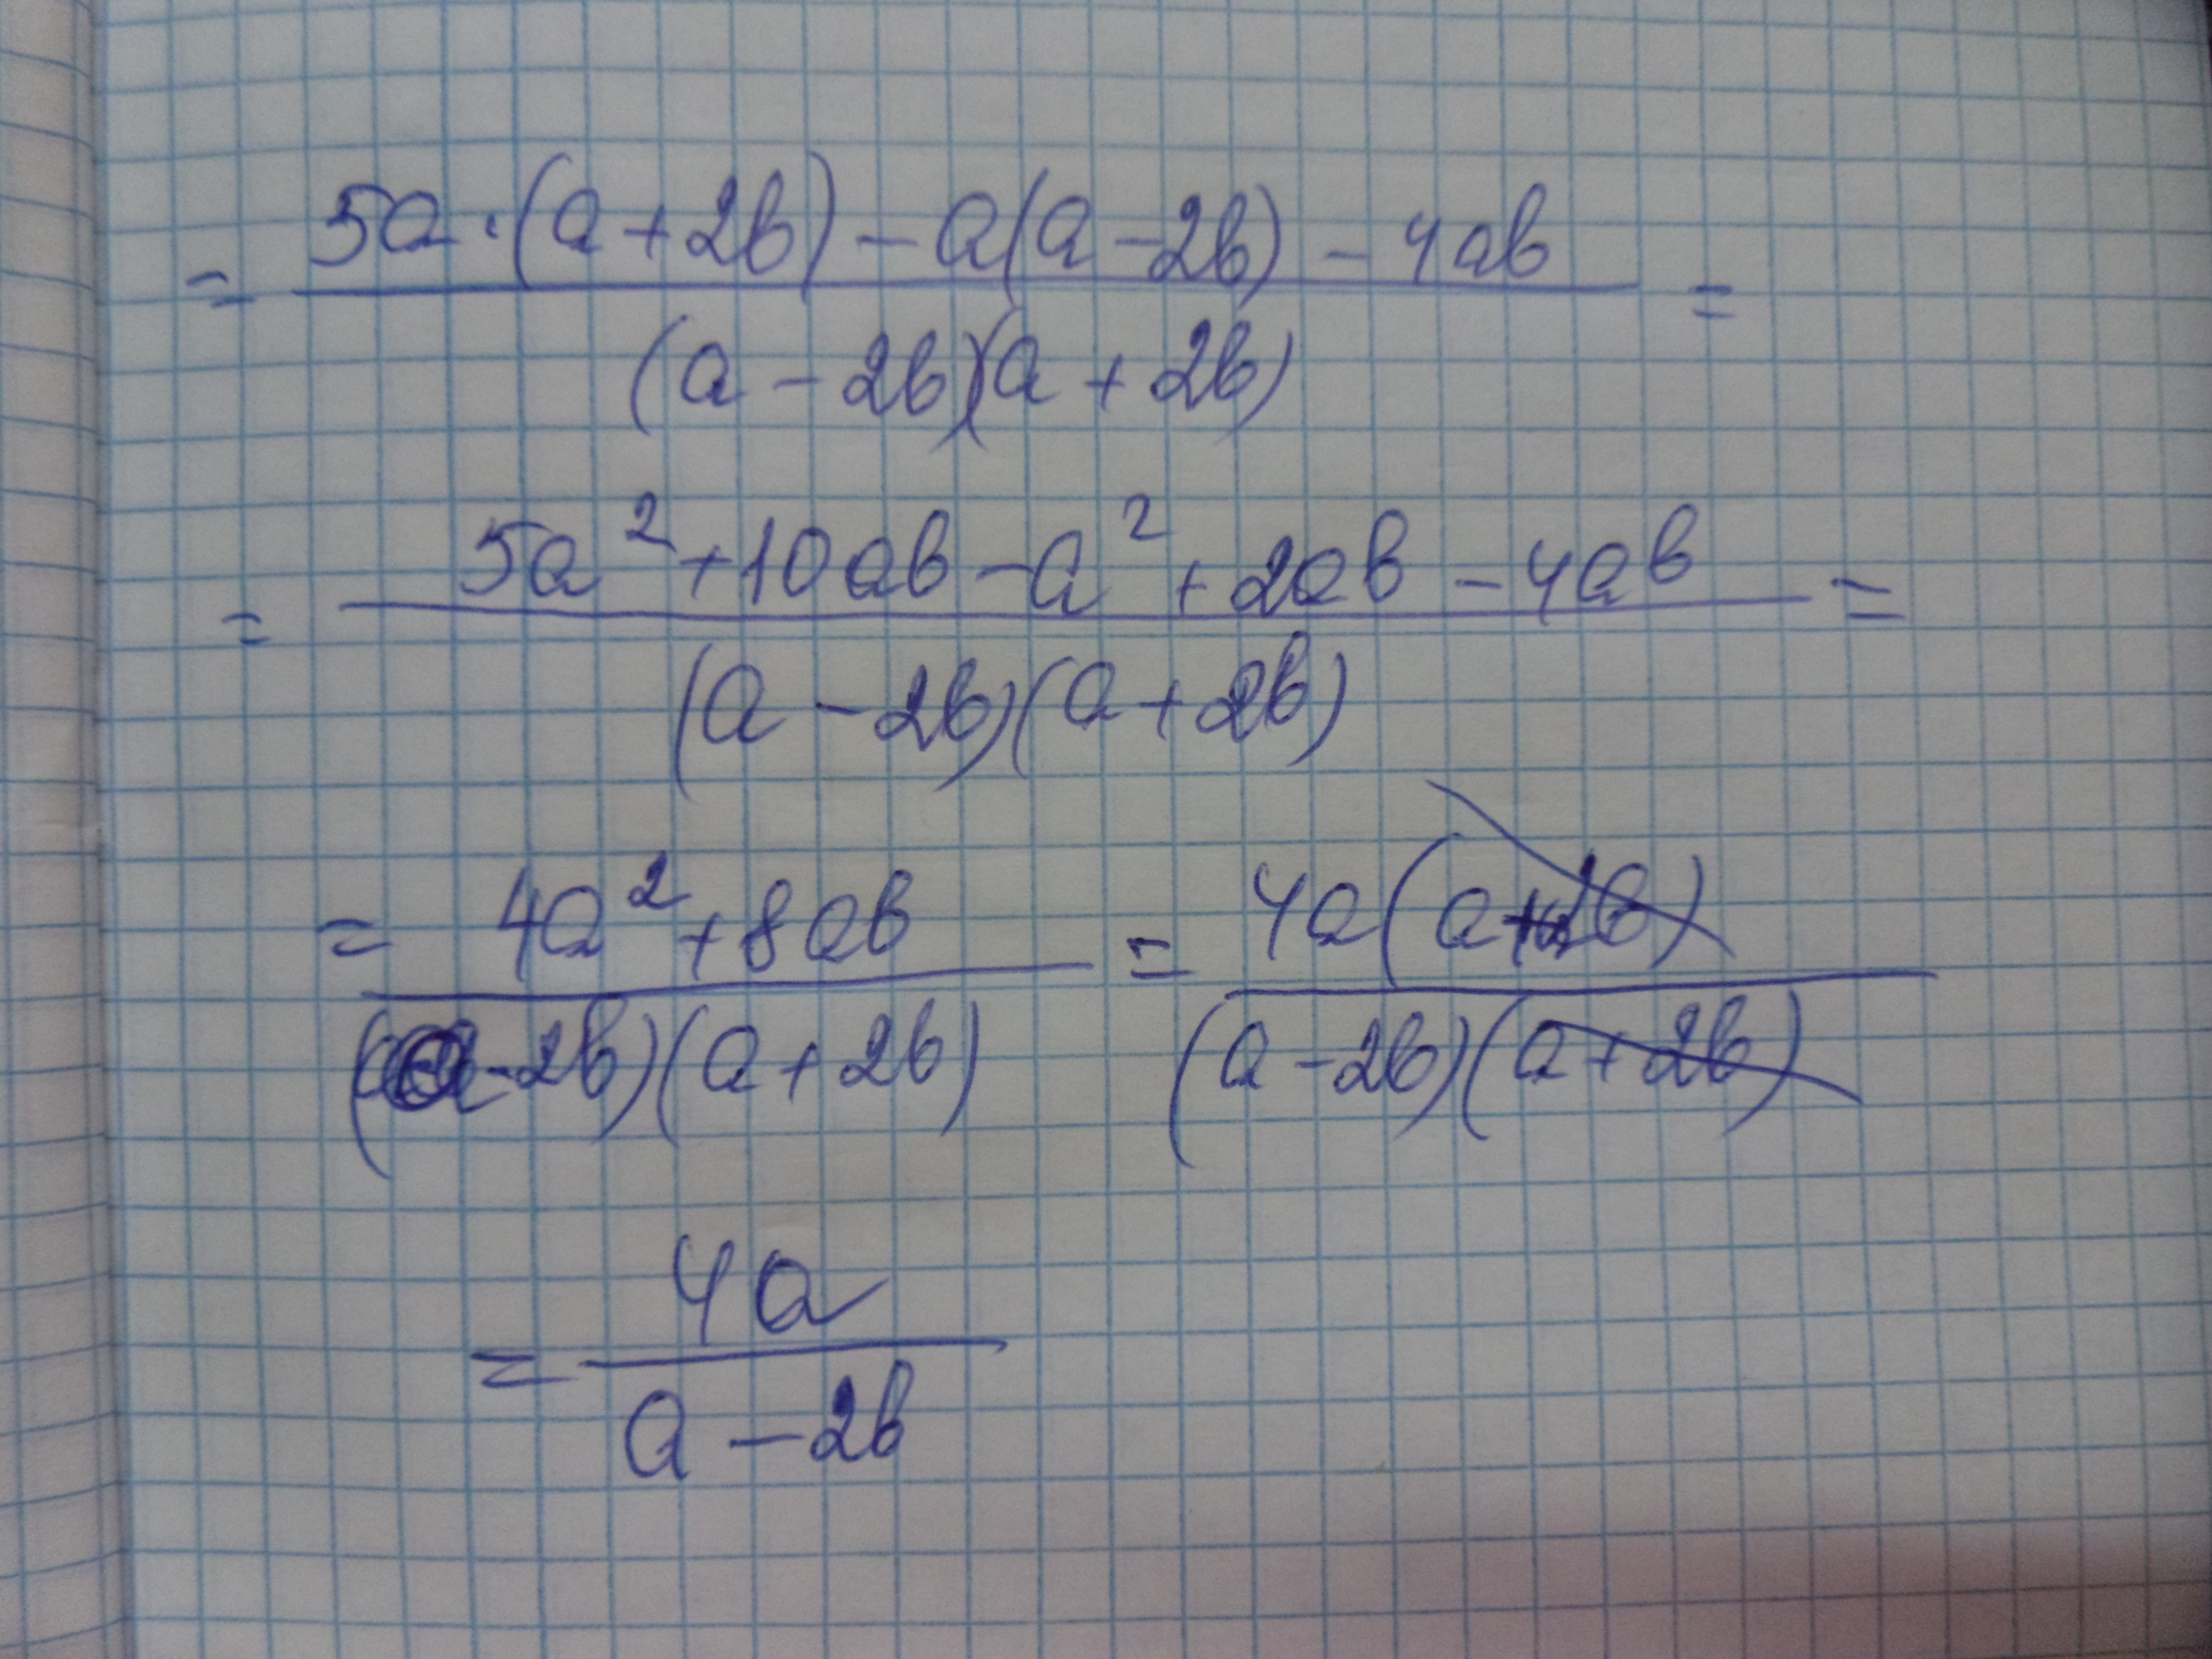 = (5a·(a+2b) - a(a-2b) - 4ab) / ((a-2b)(a+2b)) =
= (5a² + 10ab - a² + 2ab - 4ab) / ((a-2b)(a+2b)) =
= (4a² + 8ab) / ((a-2b)(a+2b)) = (4a(a+2b)) / ((a-2b)(a+2b))
= 4a / (a-2b)